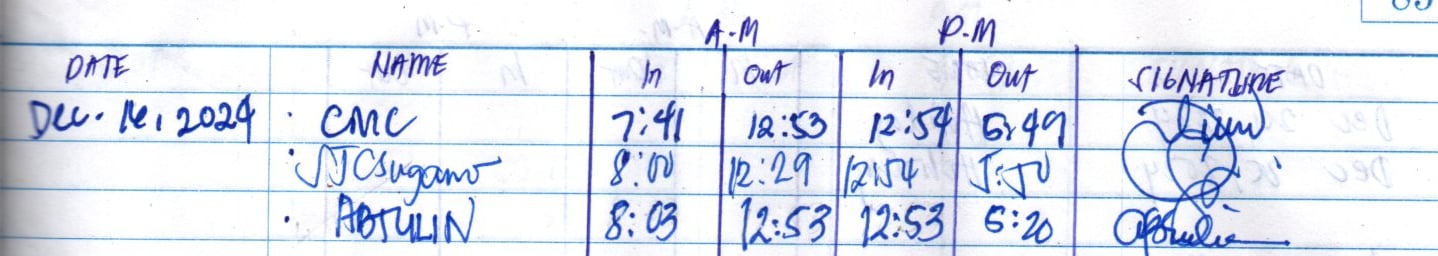 A.M P.M
DATE NAME In Out In Out SIGNATURE
Dec. 16, 2024 CMC 7:41 12:53 12:54 5:49
JTCsugamo 8:00 12:29 12:54 5:50
ABTULIN 8:03 12:53 12:53 5:20